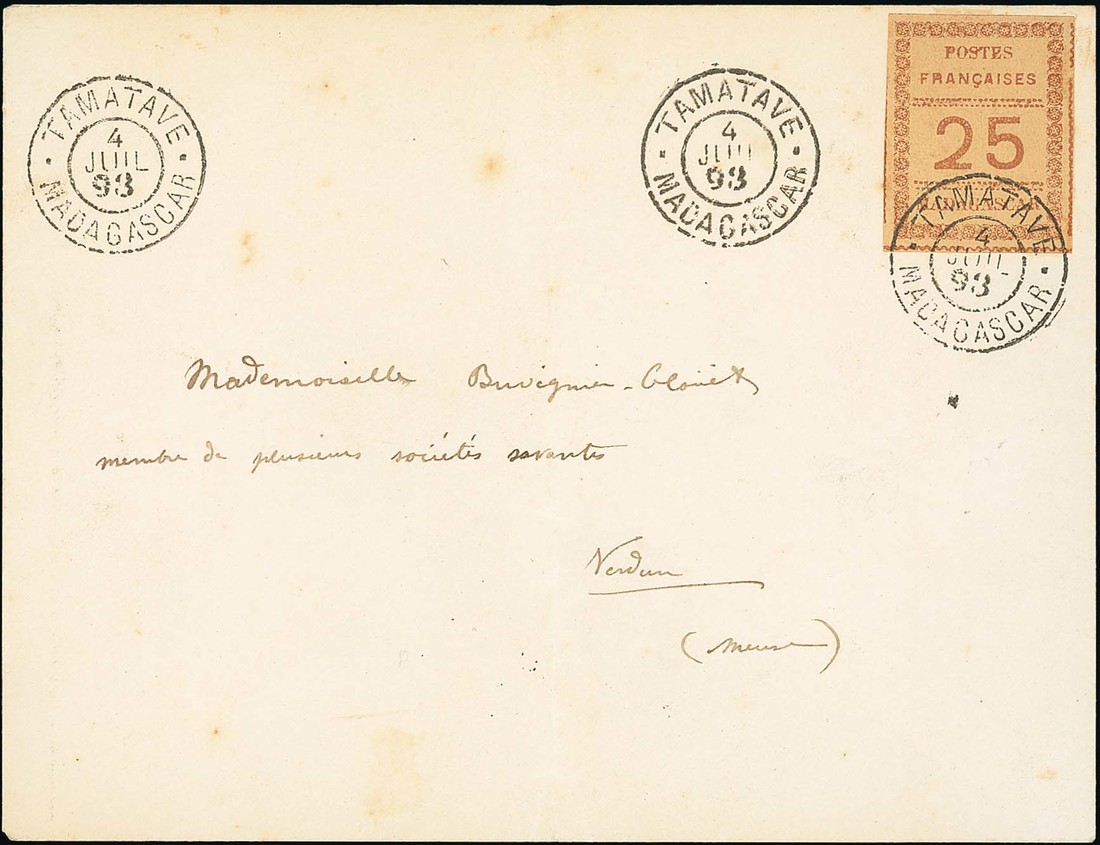 TAMATAVE
4
JUIL
93
MADAGASCAR
TAMATAVE
4
JUIL
93
MADAGASCAR
POSTES
FRANÇAISES
25
MADAGASCAR
TAMATAVE
4
JUIL
93
MADAGASCAR
Mademoiselle Buvignier-Clouët
membre de plusieurs sociétés savantes
Verdun
(Meuse)